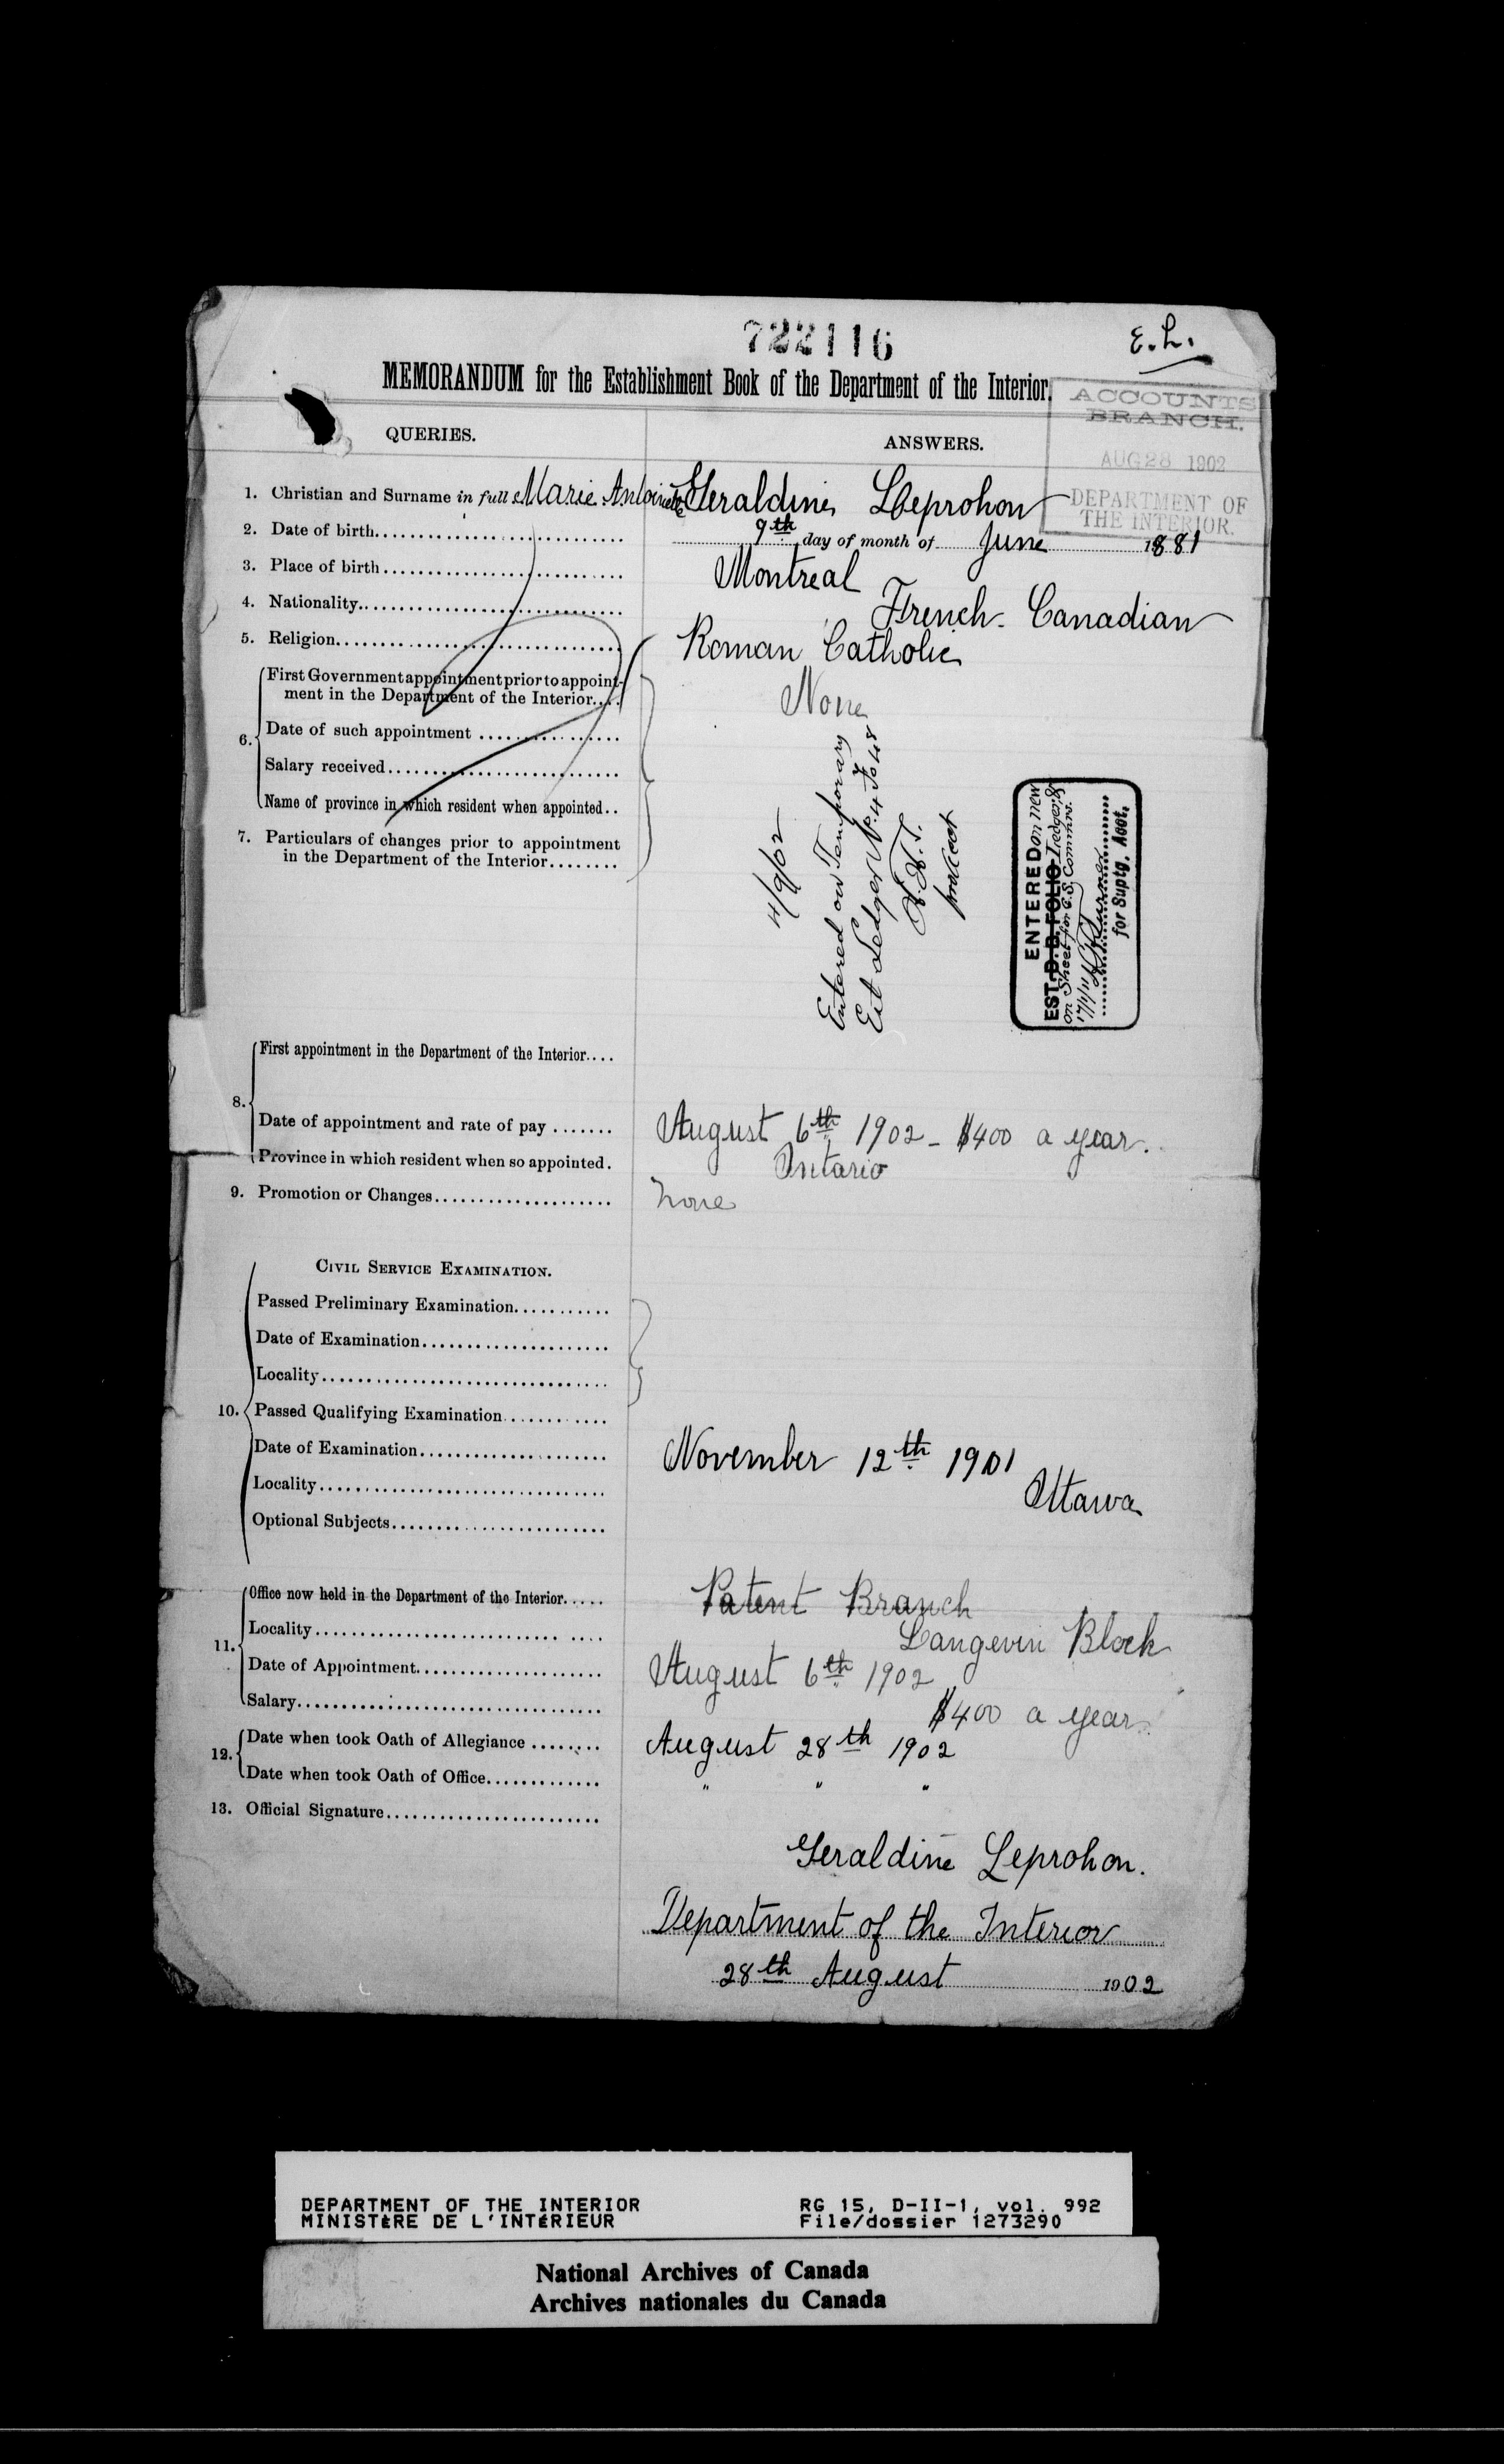 722116
E.L.
MEMORANDUM for the Establishment Book of the Department of the Interior.
ACCOUNTS
BRANCH.
AUG 28 1902
DEPARTMENT OF
THE INTERIOR.
QUERIES.
ANSWERS.
1. Christian and Surname in full Marie Antoinette Geraldine Leprohon
2. Date of birth 9th day of month of June 1881
3. Place of birth Montreal
4. Nationality French-Canadian
5. Religion Roman Catholic
6. First Government appointment prior to appoint-
ment in the Department of the Interior None
Date of such appointment
Salary received
Name of province in which resident when appointed
7. Particulars of changes prior to appointment
in the Department of the Interior
4/9/02
Entered on Temporary
Est Ledger No. 4 Fo 48
ENTERED on new
EST. B.B. FOLIO Ledger, &
on Sheet for C.S. Commrs.
for Suptg. Acct.
8. First appointment in the Department of the Interior
Date of appointment and rate of pay August 6th 1902 - $400 a year.
Province in which resident when so appointed. Ontario
9. Promotion or Changes none
CIVIL SERVICE EXAMINATION.
10. Passed Preliminary Examination
Date of Examination
Locality
Passed Qualifying Examination
Date of Examination November 12th 1901
Locality Ottawa
Optional Subjects
11. Office now held in the Department of the Interior Patent Branch
Locality Langevin Block
Date of Appointment August 6th 1902
Salary $400 a year.
12. Date when took Oath of Allegiance August 28th 1902
Date when took Oath of Office " " "
13. Official Signature
Geraldine Leprohon.
Department of the Interior
28th August 1902
DEPARTMENT OF THE INTERIOR RG 15, D-II-1, vol. 992
MINISTÈRE DE L'INTÉRIEUR File/dossier 1273290
National Archives of Canada
Archives nationales du Canada